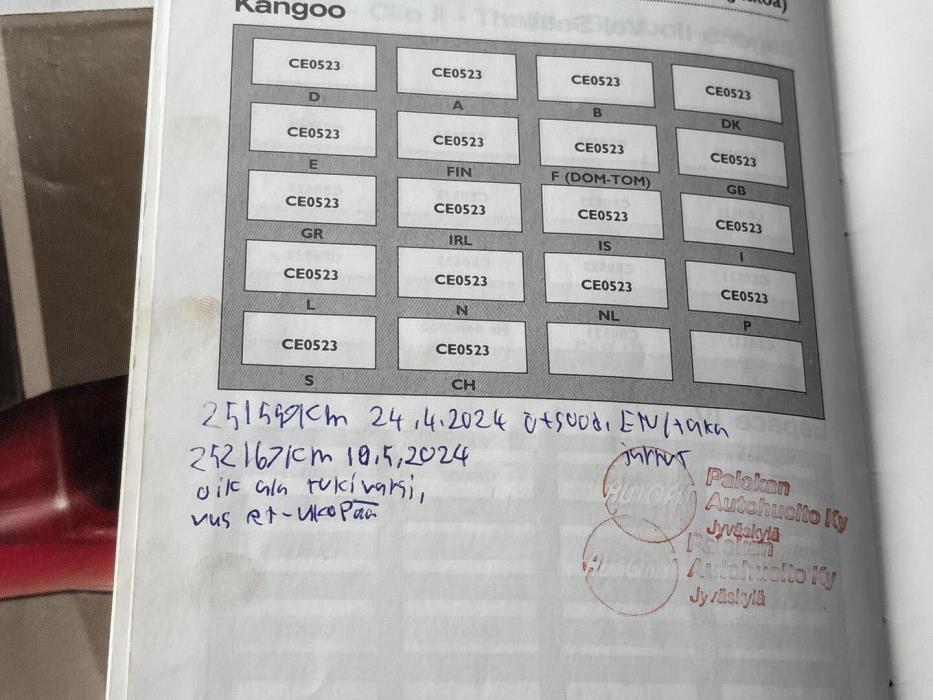 Kangoo
CE0523 CE0523 CE0523 CE0523
D A B DK
CE0523 CE0523 CE0523 CE0523
E FIN F (DOM-TOM) GB
CE0523 CE0523 CE0523 CE0523
GR IRL IS I
CE0523 CE0523 CE0523 CE0523
L N NL P
CE0523 CE0523
S CH
km 24.4.2024 ETU/taka
jarrut
252167km 10.5.2024
oik ala tukivarsi,
Palokan
Autohuolto Ky
Jyväskylä
Palokan
Autohuolto Ky
Jyväskylä